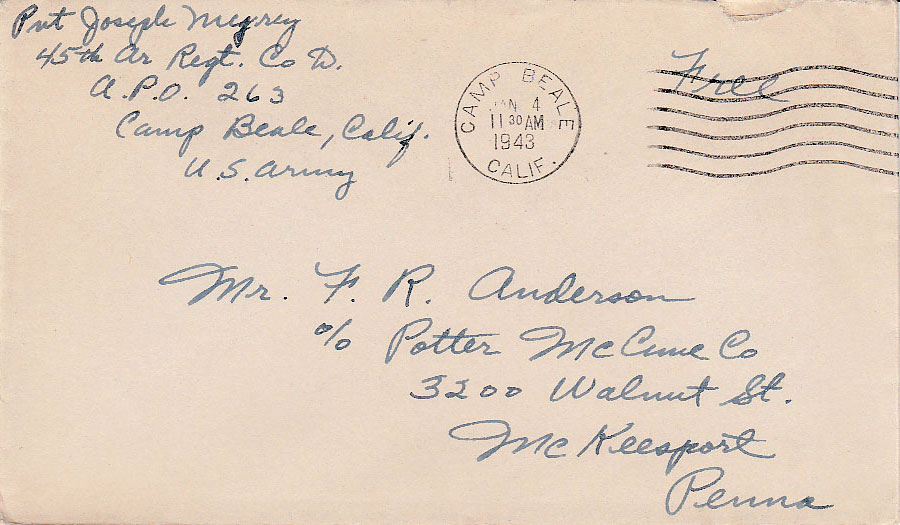 Pvt Joseph Megrey
45th Ar Regt. Co D.
A.P.O. 263
Camp Beale, Calif.
U.S. Army
CAMP BEALE
JAN 4
11 30 AM
1943
CALIF.
Free
Mr. F. R. Anderson
c/o Potter McCune Co
3200 Walnut St.
McKeesport
Penna